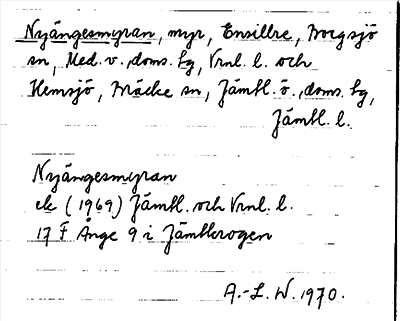 Nyängesmyran, myr, Ensillre, Borgsjö
sn, Med. v. doms. hg, Vrnl. l. och
Hemsjö, Bräcke sn, Jämtl. ö. doms. hg,
Jämtl. l.
Nyängesmyran
ek (1969) Jämtl. och Vrnl. l.
17 F Ånge 9 i Jämtkrogen
A.-L. W. 1970.